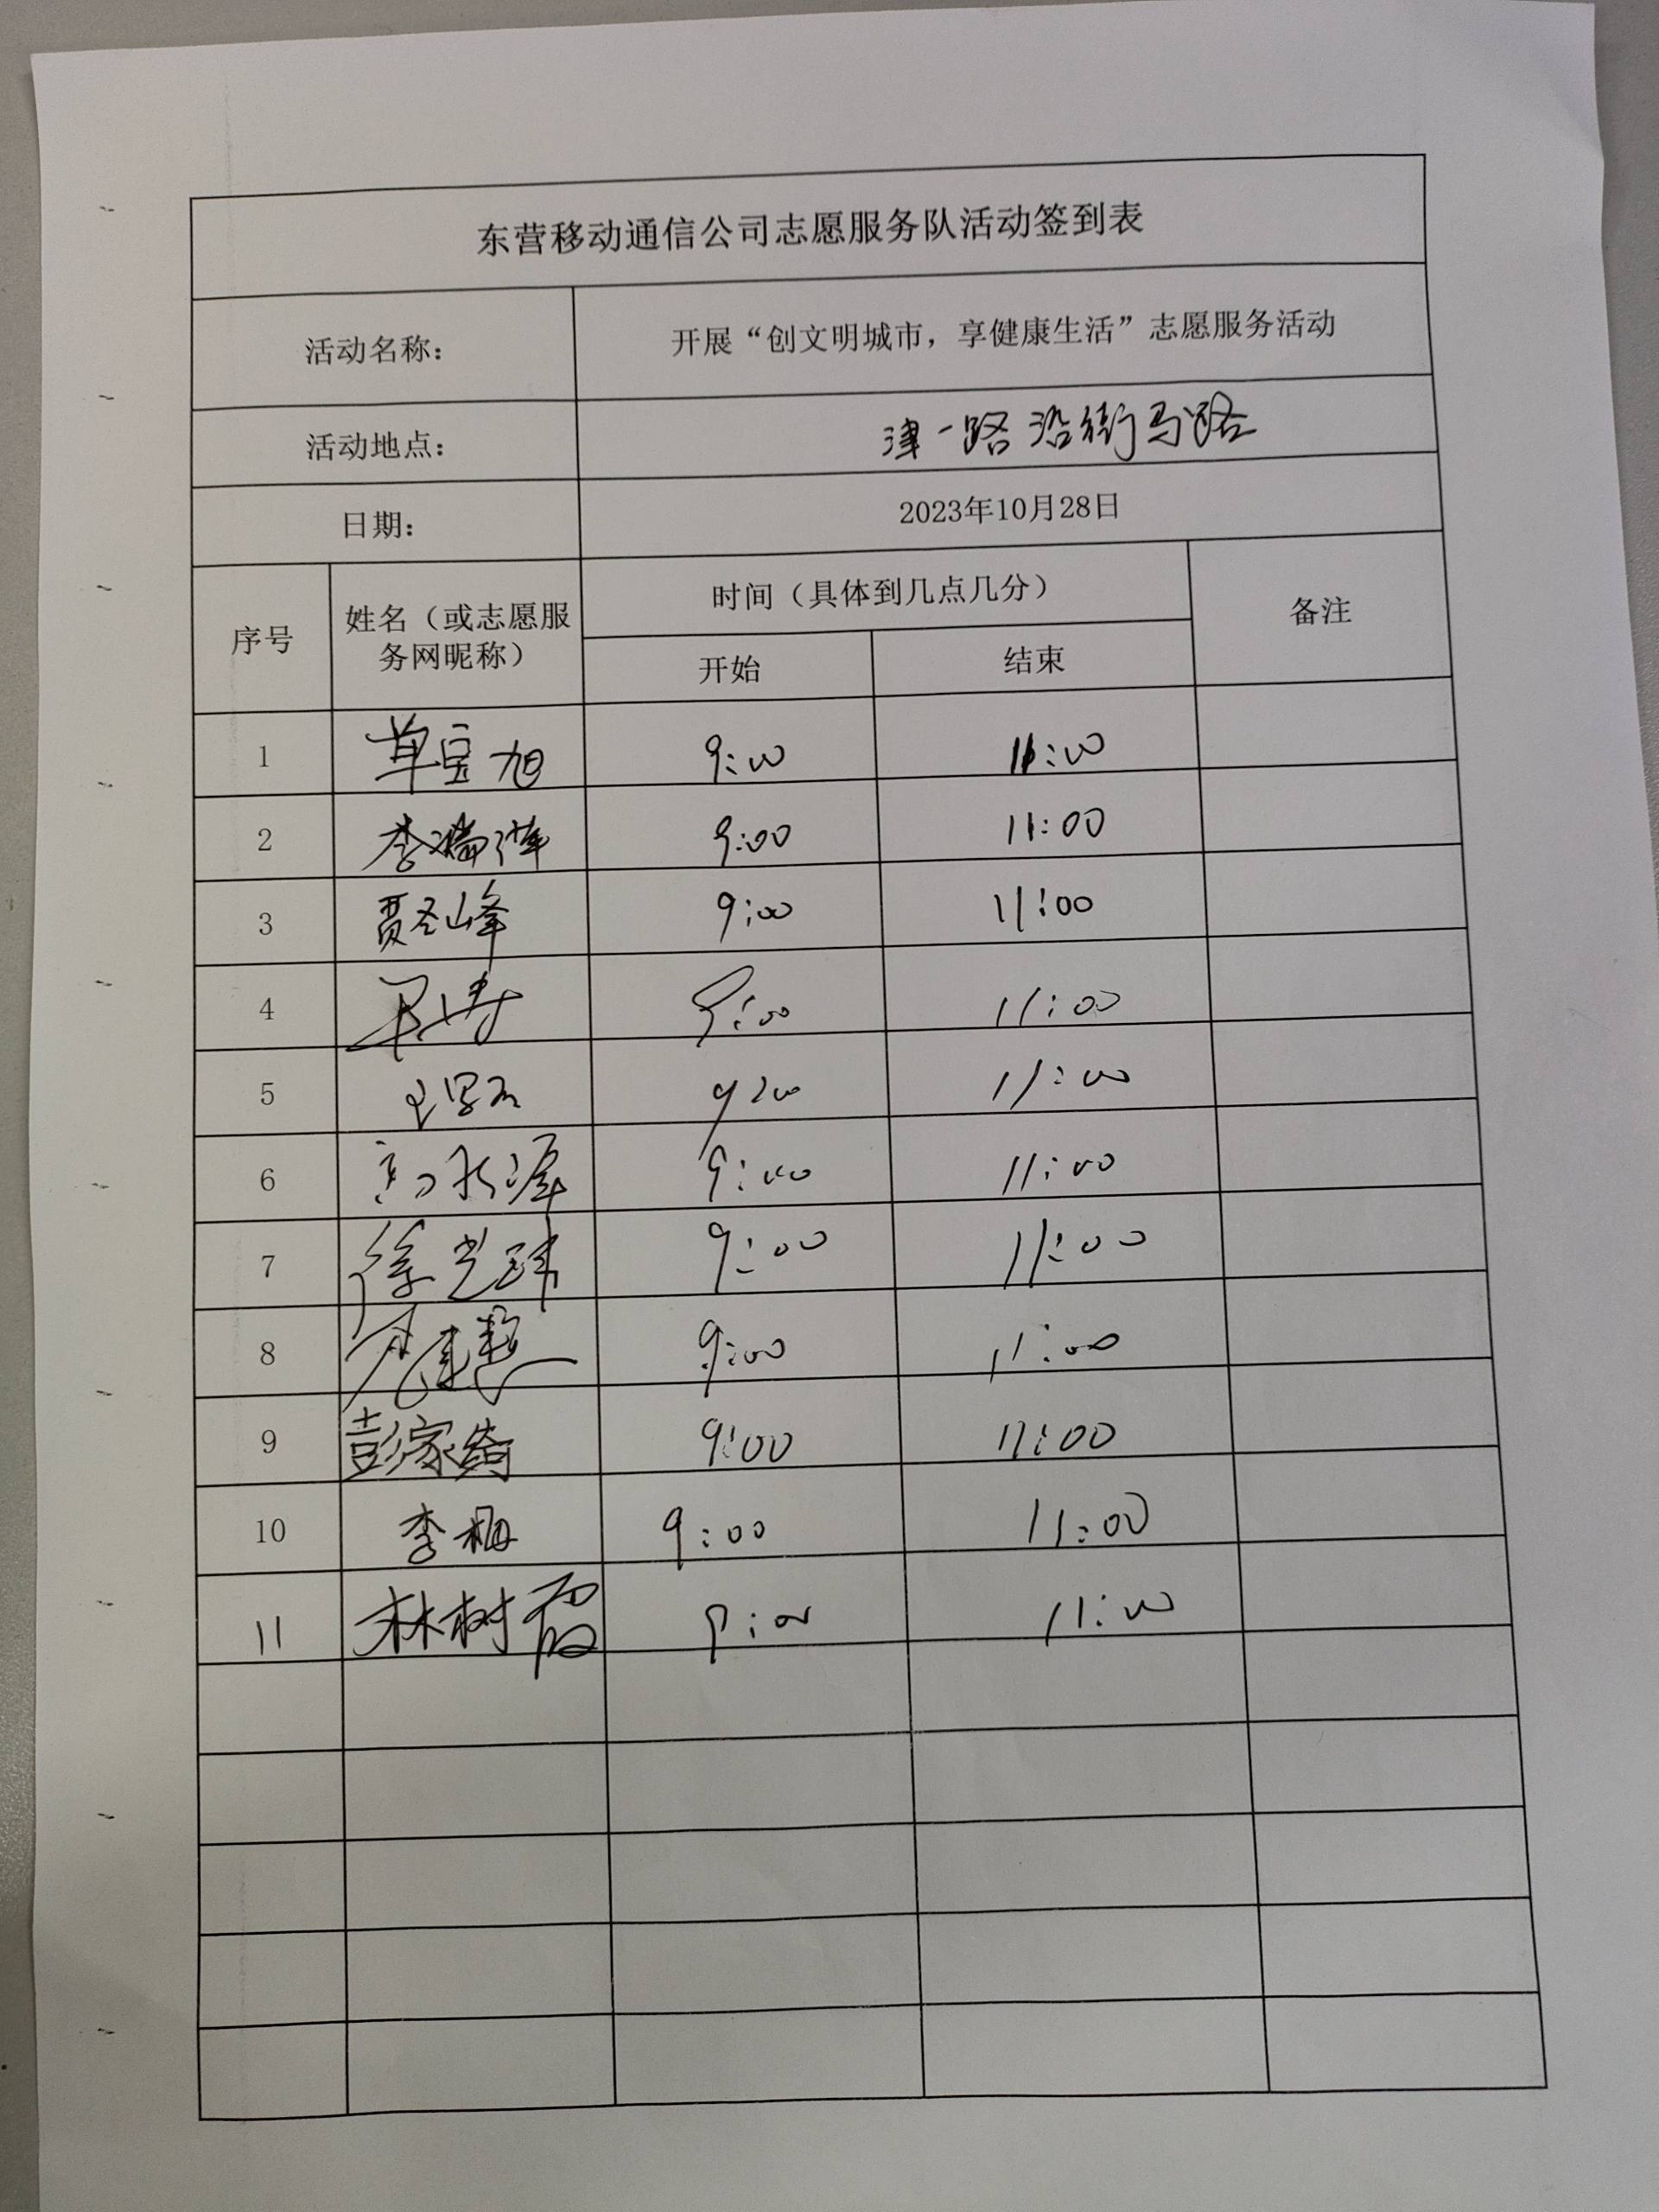 东营移动通信公司志愿服务队活动签到表
活动名称：
开展“创文明城市，享健康生活”志愿服务活动
活动地点：
津一路沿街马路
日期：
2023年10月28日
序号
姓名（或志愿服
务网昵称）
时间（具体到几点几分）
备注
开始
结束
1 单宝旭 9:00 11:00
2 李瑞洋 9:00 11:00
3 贾圣峰 9:00 11:00
4 9:00 11:00
5 9:00 11:00
6 高永泽 9:00 11:00
7 徐光玮 9:00 11:00
8 9:00 11:00
9 彭家绮 9:00 11:00
10 李梅 9:00 11:00
11 林树霞 9:00 11:00